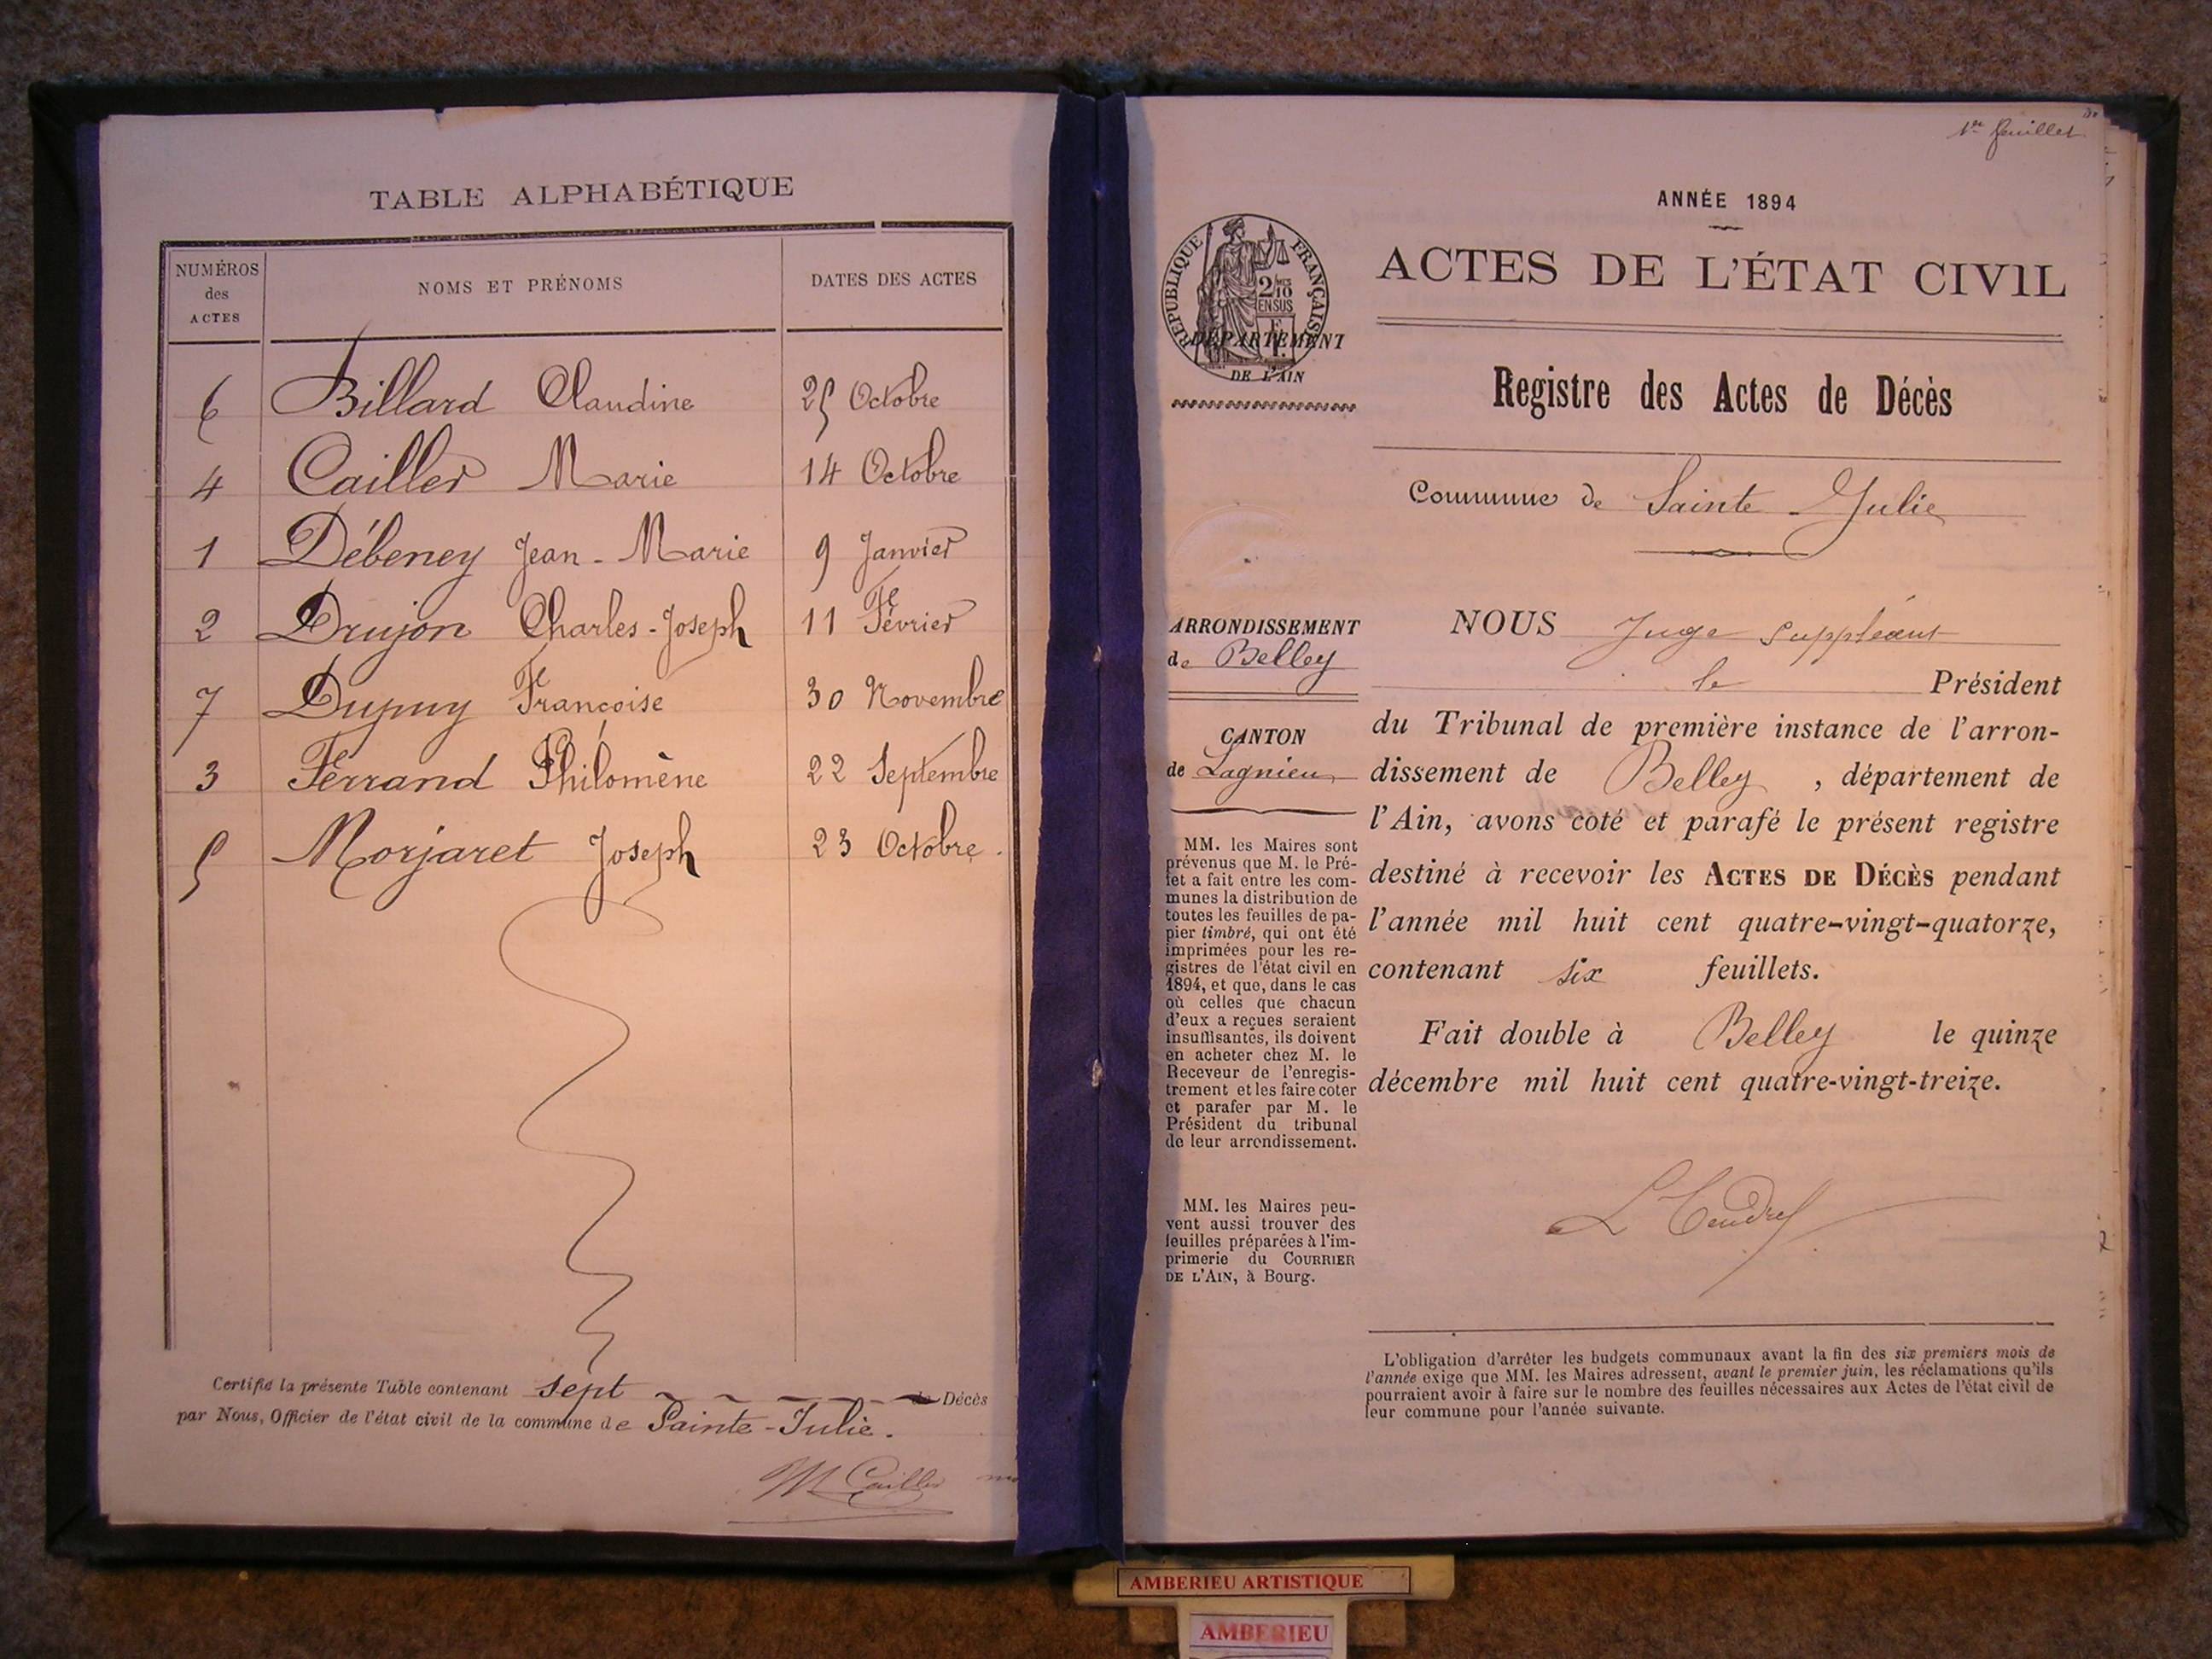 TABLE ALPHABÉTIQUE
NUMÉROS des ACTES
NOMS ET PRÉNOMS
DATES DES ACTES
6 Billard Claudine 25 Octobre
4 Cailler Marie 14 Octobre
1 Débeney Jean-Marie 9 Janvier
2 Drujon Charles-Joseph 11 Février
7 Dupuy Françoise 30 Novembre
3 Ferrand Philomène 22 Septembre
5 Morjaret Joseph 23 Octobre.
Certifié la présente Table contenant sept de Décès
par Nous, Officier de l'état civil de la commune de Sainte-Julie.
M Cailler
1er feuillet
ANNÉE 1894
RÉPUBLIQUE FRANÇAISE
2/10
EN SUS
DÉPARTEMENT
DE L'AIN
ACTES DE L'ÉTAT CIVIL
Registre des Actes de Décès
Commune de Sainte Julie
ARRONDISSEMENT
de Belley
CANTON
de Lagnieu
MM. les Maires sont
prévenus que M. le Pré-
fet a fait entre les com-
munes la distribution de
toutes les feuilles de pa-
pier timbré, qui ont été
imprimées pour les re-
gistres de l'état civil en
1894, et que, dans le cas
où celles que chacun
d'eux a reçues seraient
insuffisantes, ils doivent
en acheter chez M. le
Receveur de l'enregis-
trement et les faire coter
et parafer par M. le
Président du tribunal
de leur arrondissement.
MM. les Maires peu-
vent aussi trouver des
feuilles préparées à l'im-
primerie du COURRIER
DE L'AIN, à Bourg.
NOUS Juge suppléant
le Président
du Tribunal de première instance de l'arron-
dissement de Belley, département de
l'Ain, avons coté et parafé le présent registre
destiné à recevoir les ACTES DE DÉCÈS pendant
l'année mil huit cent quatre-vingt-quatorze,
contenant six feuillets.
Fait double à Belley le quinze
décembre mil huit cent quatre-vingt-treize.
L'obligation d'arrêter les budgets communaux avant la fin des six premiers mois de
l'année exige que MM. les Maires adressent, avant le premier juin, les réclamations qu'ils
pourraient avoir à faire sur le nombre des feuilles nécessaires aux Actes de l'état civil de
leur commune pour l'année suivante.
AMBERIEU ARTISTIQUE
AMBERIEU